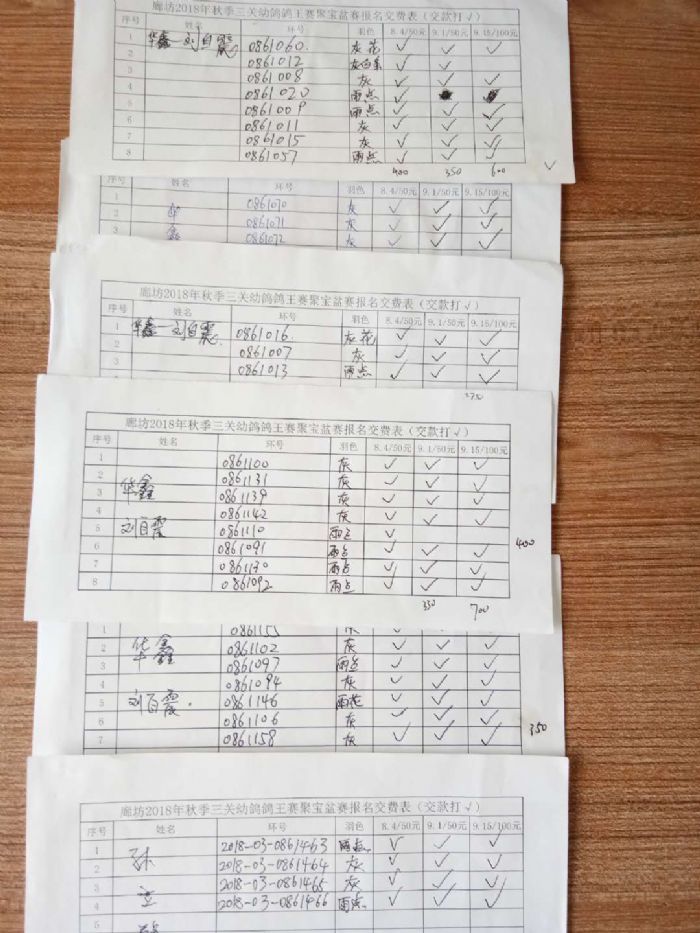 廊坊2018年秋季三关幼鸽鸽王赛聚宝盆赛报名交费表（交款打√）
序号 姓名 环号 羽色 8.4/50元 9.1/50元 9.15/100元
1 华鑫—刘自震 0861060. 灰花 √ √ √
2 0861012 灰白条 √ √
3 0861008 灰 √ √ √
4 0861020 雨点 √
5 0861009 雨点 √ √ √
6 0861011 灰 √ √ √
7 0861015 灰 √ √ √
8 0861057 雨点 √ √ √
400 350 600 √
序号 姓名 环号 羽色 8.4/50元 9.1/50元 9.15/100元
1 0861070 灰 √ √ √
2 鑫 0861071 灰 √ √ √
3 0861072 灰 √ √ √
廊坊2018年秋季三关幼鸽鸽王赛聚宝盆赛报名交费表（交款打√）
序号 姓名 环号 羽色 8.4/50元 9.1/50元 9.15/100元
1 华鑫—刘自震. 0861016. 灰花 √ √ √
2 0861007 灰 √ √ √
3 0861013 雨点 √ √ √
廊坊2018年秋季三关幼鸽鸽王赛聚宝盆赛报名交费表（交款打√）
序号 姓名 环号 羽色 8.4/50元 9.1/50元 9.15/100元
1 0861100 灰 √ √ √
2 华鑫 0861131 灰 √ √ √
3 0861139 灰 √ √ √
4 0861142 灰 √ √ √
5 刘自震 0861110 雨点 √
6 0861091 雨点 √ √ √
7 0861130 雨点 √ √ √
8 0861092 雨点 √ √ √
400
350 700
1 0861155 灰 √ √ √
2 华鑫 0861102 灰 √ √ √
3 0861097 雨点 √ √ √
4 0861094 灰 √ √ √
5 刘自震. 0861146 雨花 √ √ √
6 0861106 灰 √ √ √
7 0861158 灰 √ √ √
350
廊坊2018年秋季三关幼鸽鸽王赛聚宝盆赛报名交费表（交款打√）
序号 姓名 环号 羽色 8.4/50元 9.1/50元 9.15/100元
1 孙 2018-03-0861463 雨点 √ √ √
2 2018-03-0861464 灰 √ √ √
3 立 2018-03-0861465 灰 √ √ √
4 2018-03-0861466 雨点 √ √ √
5